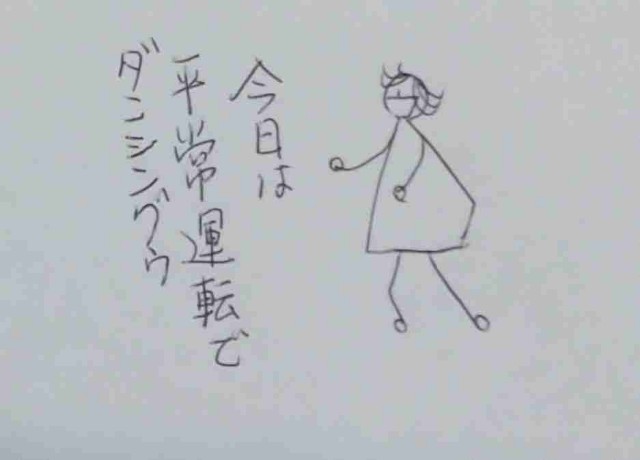 今日は
平常運転で
ダンシングゥ